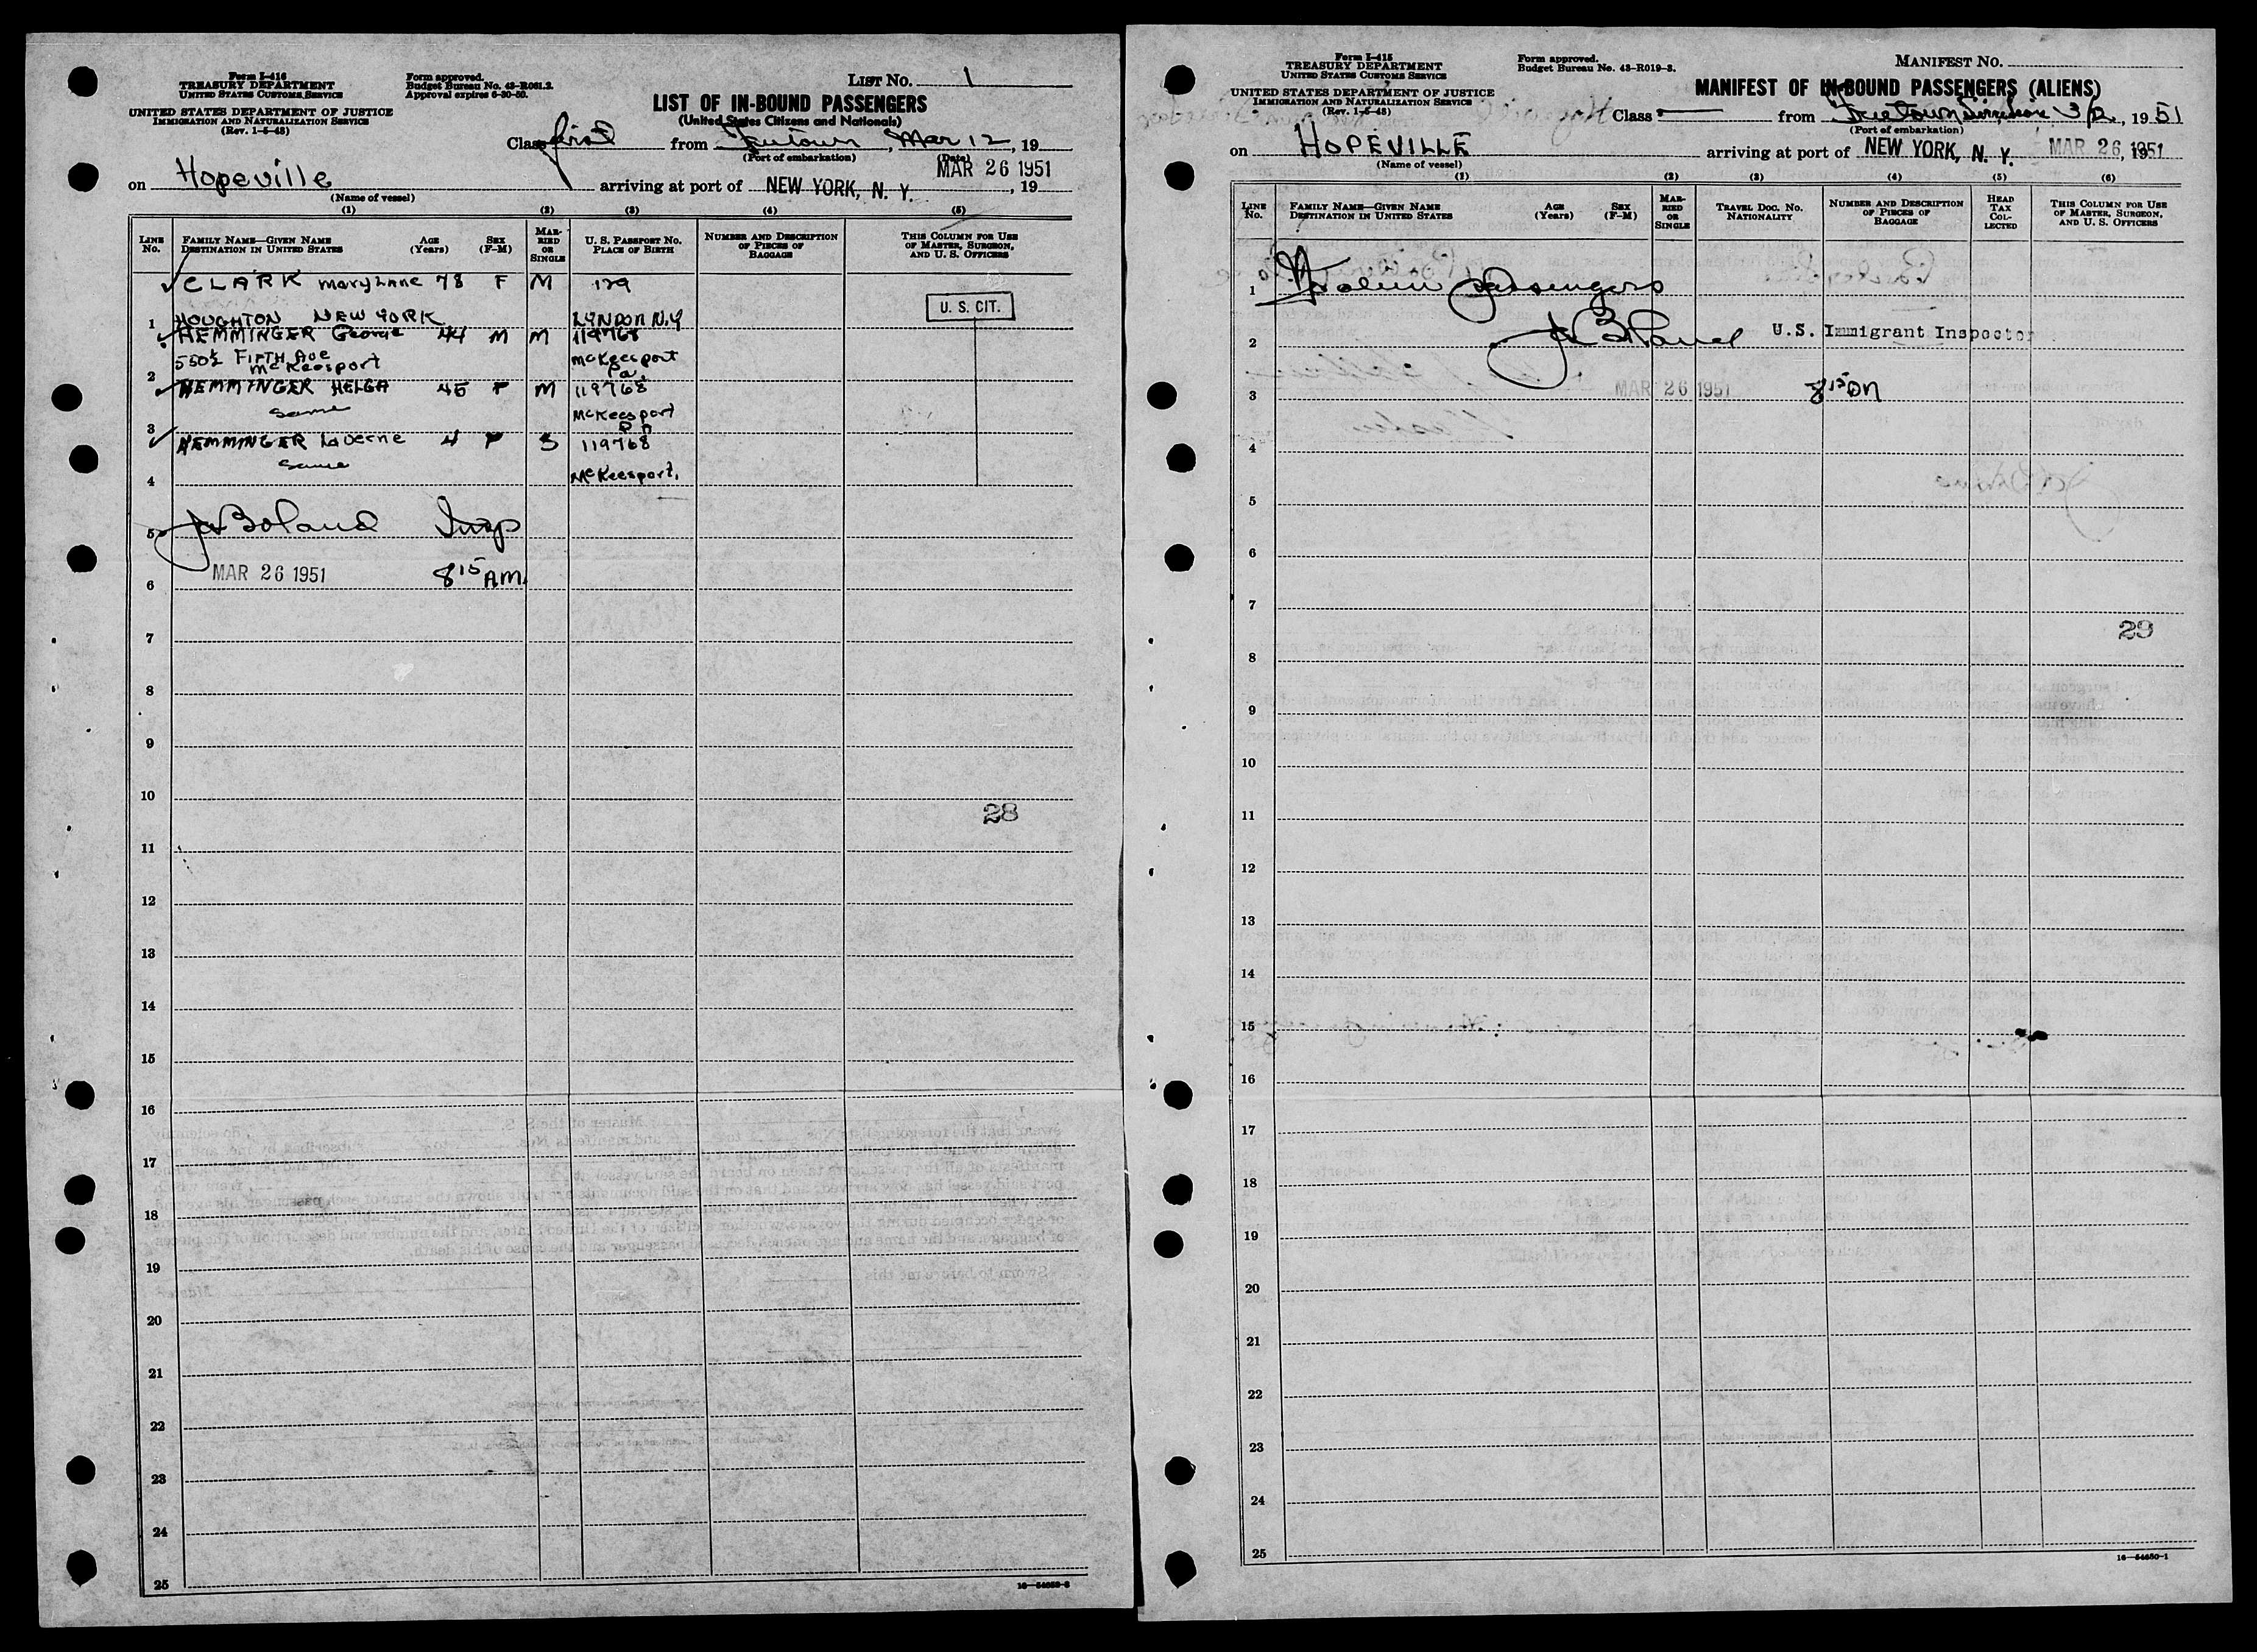 Form I-416
TREASURY DEPARTMENT
UNITED STATES CUSTOMS SERVICE
UNITED STATES DEPARTMENT OF JUSTICE
IMMIGRATION AND NATURALIZATION SERVICE
(Rev. 1-5-48)
Form approved.
Budget Bureau No. 43-R061.3.
Approval expires 6-30-50.
LIST No. 1
LIST OF IN-BOUND PASSENGERS
(United States Citizens and Nationals)
Class first from Freetown, Mar 12, 19
(Port of embarkation) (Date)
MAR 26 1951
on Hopeville arriving at port of NEW YORK, N. Y. , 19
(Name of vessel)
(1) (2) (3) (4) (5)
LINE No.
FAMILY NAME—GIVEN NAME
DESTINATION IN UNITED STATES
AGE (Years)
SEX (F-M)
MARRIED OR SINGLE
U. S. PASSPORT NO.
PLACE OF BIRTH
NUMBER AND DESCRIPTION OF PIECES OF BAGGAGE
THIS COLUMN FOR USE OF MASTER, SURGEON, AND U. S. OFFICERS
CLARK Mary Lane 78 F M 129
U. S. CIT.
1 HOUGHTON NEW YORK LYNDON N.Y
HEMMINGER George 44 M M 119768
550½ FIFTH AVE McKeesport
McKeesport Pa.
2
HEMMINGER HELGA 45 F M 119768
same McKeesport
Pa
3
HEMMINGER Laverne 4 F S 119768
same
4 McKeesport.
5 J Boland Insp
6 MAR 26 1951 8 15 AM.
7
8
9
10
28
11
12
13
14
15
16
17
18
19
20
21
22
23
24
25
Form I-415
TREASURY DEPARTMENT
UNITED STATES CUSTOMS SERVICE
UNITED STATES DEPARTMENT OF JUSTICE
IMMIGRATION AND NATURALIZATION SERVICE
(Rev. 1-5-48)
Form approved.
Budget Bureau No. 43-R019-3.
MANIFEST No.
MANIFEST OF IN-BOUND PASSENGERS (ALIENS)
Class — from Freetown 3/12, 1951
(Port of embarkation)
on HOPEVILLE arriving at port of NEW YORK, N. Y. MAR 26 1951
(Name of vessel)
(1) (2) (3) (4) (5) (6)
LINE No.
FAMILY NAME—GIVEN NAME
DESTINATION IN UNITED STATES
AGE (Years)
SEX (F-M)
MARRIED OR SINGLE
TRAVEL DOC. NO.
NATIONALITY
NUMBER AND DESCRIPTION OF PIECES OF BAGGAGE
HEAD TAX COLLECTED
THIS COLUMN FOR USE OF MASTER, SURGEON, AND U. S. OFFICERS
1 No alien passengers
2 J Boland U.S. Immigrant Inspector
3 MAR 26 1951 8 15
4
5
6
7
29
8
9
10
11
12
13
14
15
16
17
18
19
20
21
22
23
24
25